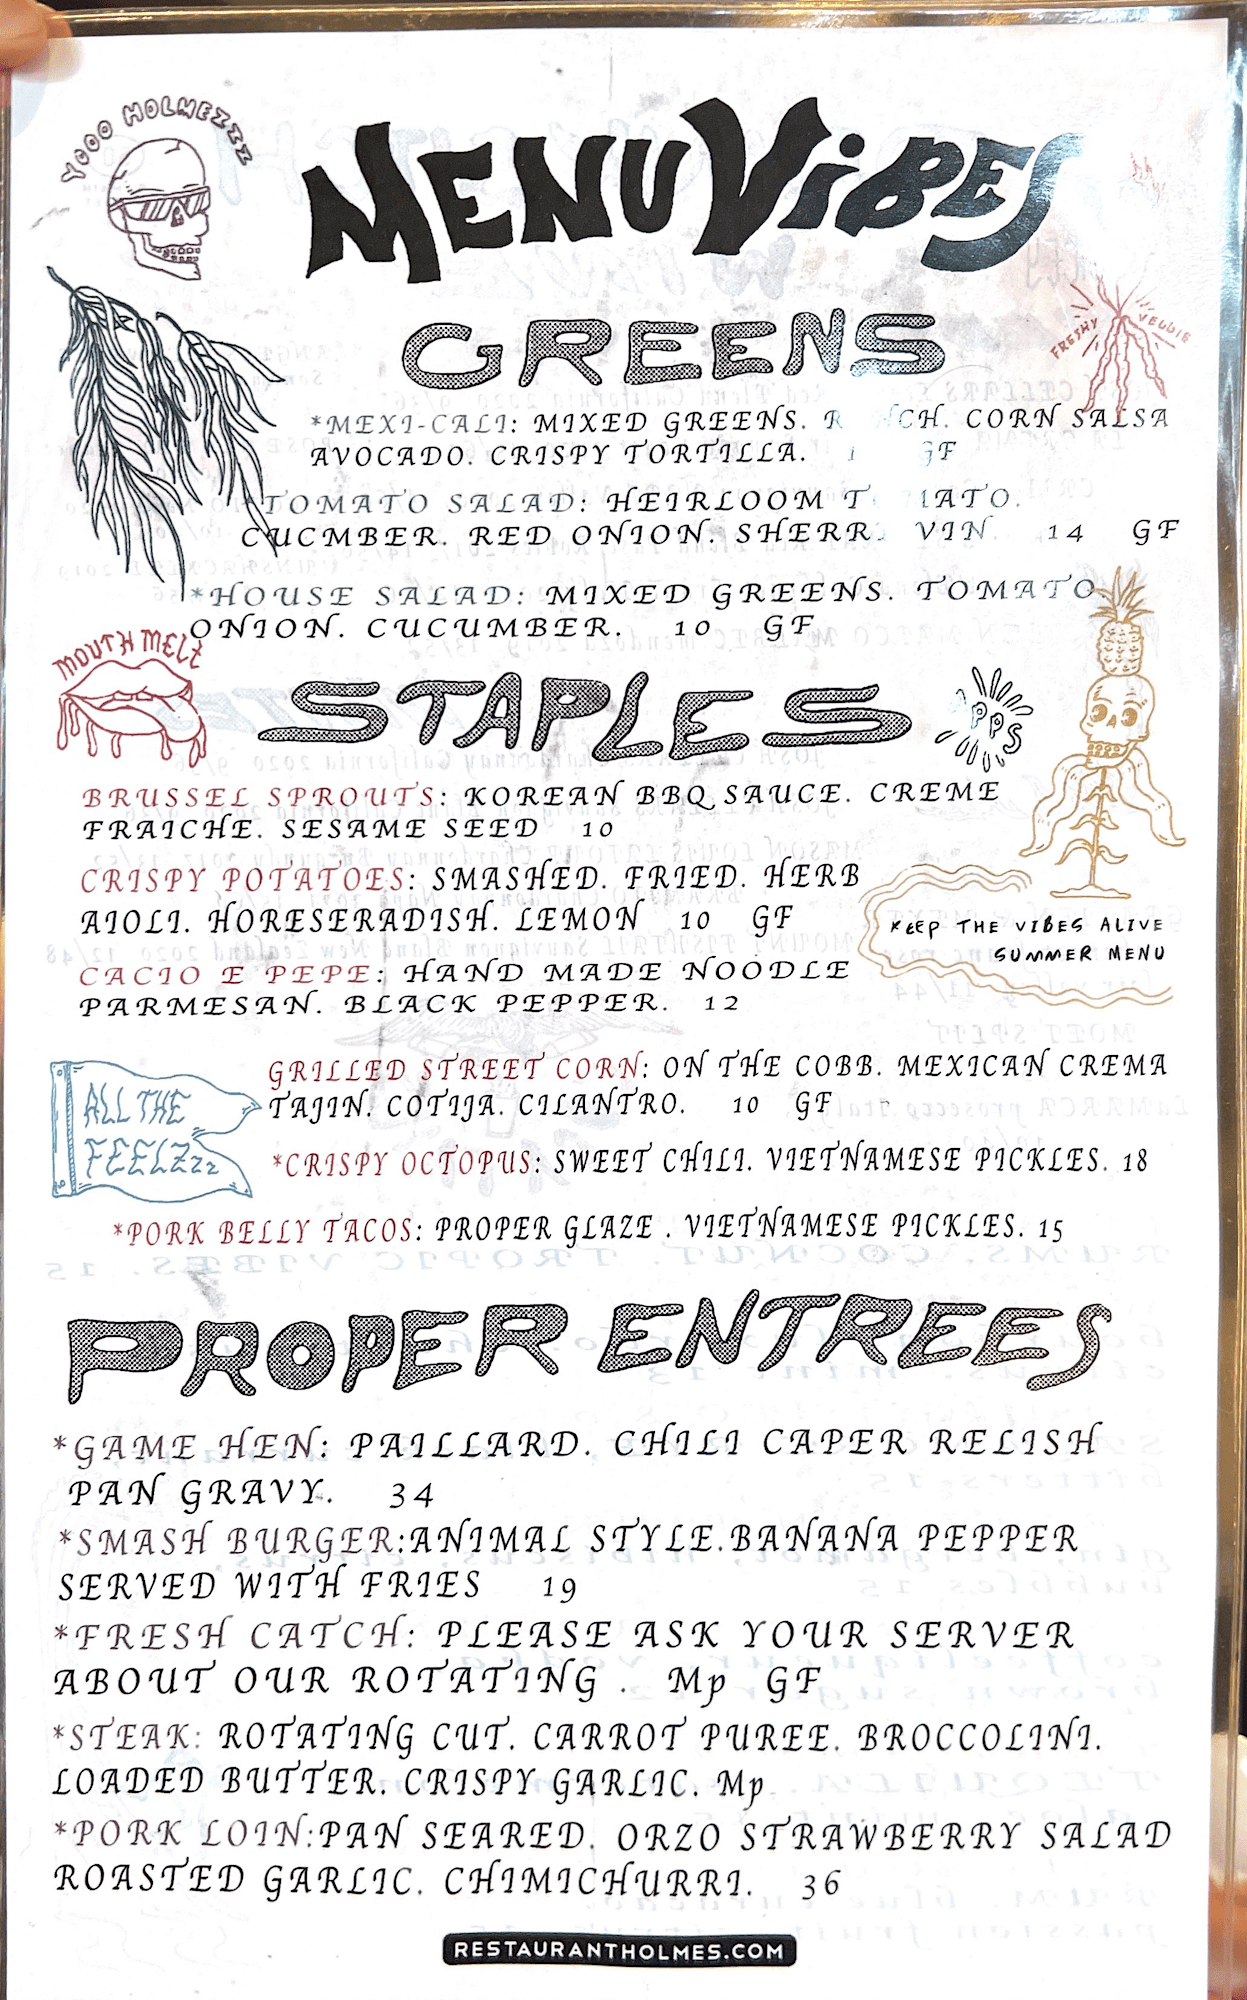 YOOO HOLMEZZZ
MENU VIBES
GREENS
FRESHY VEGGIE
*MEXI-CALI: MIXED GREENS. CORN SALSA
AVOCADO. CRISPY TORTILLA. GF
*TOMATO SALAD: HEIRLOOM
CUCMBER. RED ONION. VIN. 14 GF
*HOUSE SALAD: MIXED GREENS. TOMATO.
ONION. CUCUMBER. 10 GF
MOUTH MELT
STAPLES
APPS
BRUSSEL SPROUTS: KOREAN BBQ SAUCE. CREME
FRAICHE. SESAME SEED 10
CRISPY POTATOES: SMASHED. FRIED. HERB
AIOLI. HORESERADISH. LEMON 10 GF
KEEP THE VIBES ALIVE
SUMMER MENU
CACIO E PEPE: HAND MADE NOODLE
PARMESAN. BLACK PEPPER. 12
ALL THE
FEELZzz
GRILLED STREET CORN: ON THE COBB. MEXICAN CREMA
TAJIN. COTIJA. CILANTRO. 10 GF
*CRISPY OCTOPUS: SWEET CHILI. VIETNAMESE PICKLES. 18
*PORK BELLY TACOS: PROPER GLAZE . VIETNAMESE PICKLES. 15
PROPER ENTREES
*GAME HEN: PAILLARD. CHILI CAPER RELISH
PAN GRAVY. 34
*SMASH BURGER:ANIMAL STYLE.BANANA PEPPER
SERVED WITH FRIES 19
*FRESH CATCH: PLEASE ASK YOUR SERVER
ABOUT OUR ROTATING . Mp GF
*STEAK: ROTATING CUT. CARROT PUREE. BROCCOLINI.
LOADED BUTTER. CRISPY GARLIC. Mp
*PORK LOIN:PAN SEARED. ORZO STRAWBERRY SALAD
ROASTED GARLIC. CHIMICHURRI. 36
RESTAURANTHOLMES.COM